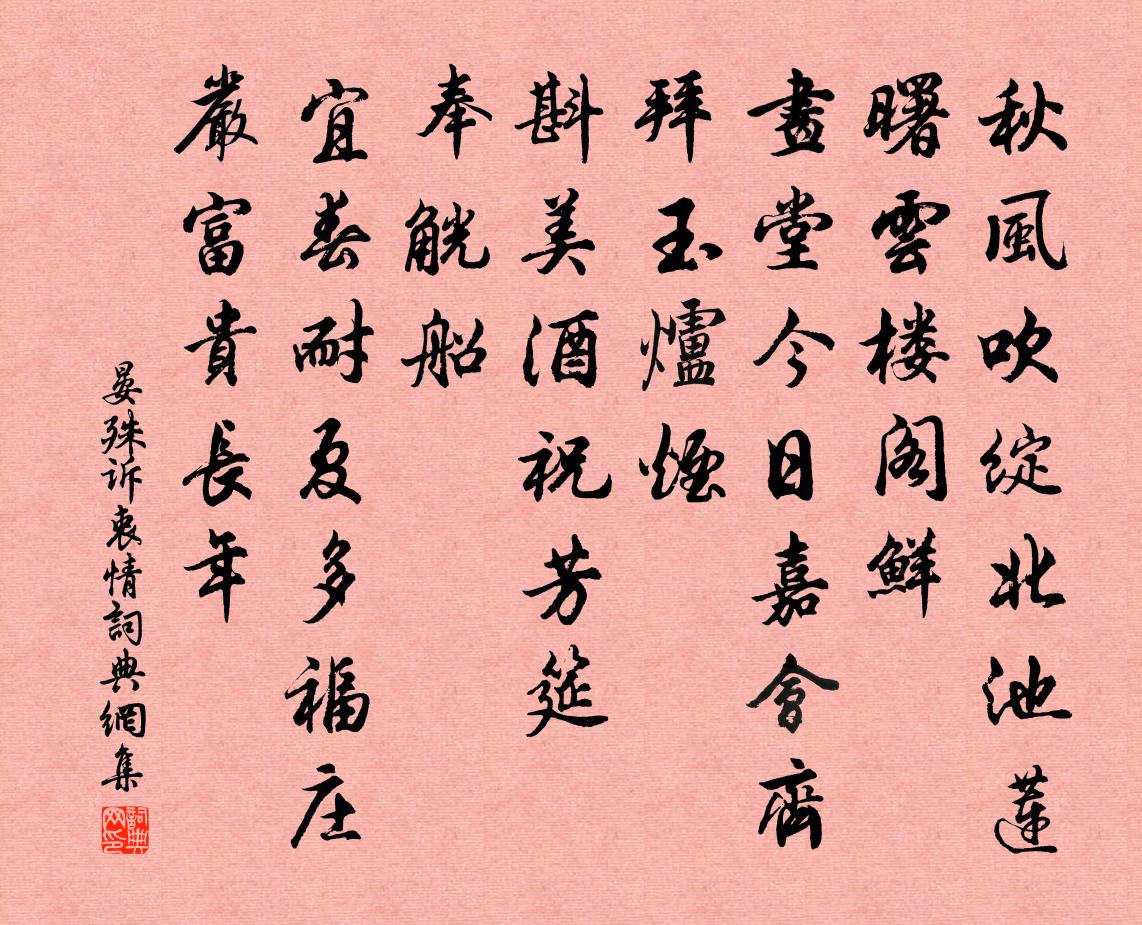 秋風吹綻北池蓮
曙雲楼阁鮮
畫堂今日嘉會齊
拜玉爐煙
斟美酒祝芳筵
奉觥船
宜春耐夏多福庄
嚴富貴長年
晏殊诉衷情詞典網集
詞典网印